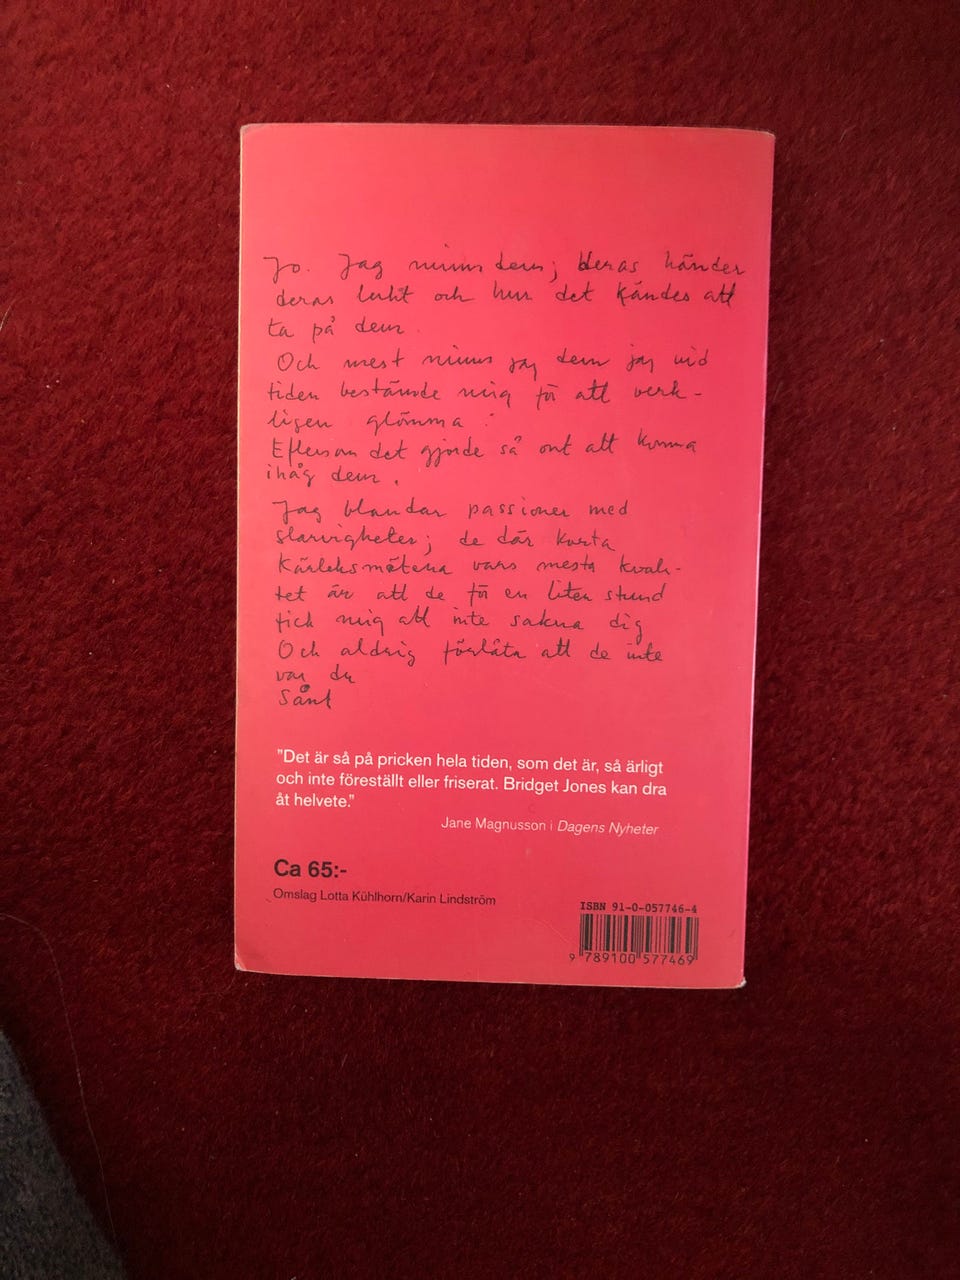 Jo. Jag minns dem; deras händer
deras lukt och hur det kändes att
ta på dem.
Och mest minns jag dem jag vid
tiden bestämde mig för att verk-
ligen glömma.
Eftersom det gjorde så ont att komma
ihåg dem.
Jag blandar passioner med
slarvigheter; de där korta
kärleksmötena vars mesta kvali-
tet är att de för en liten stund
fick mig att inte sakna dig
Och aldrig förlåta att de inte
var du
Sånt
"Det är så på pricken hela tiden, som det är, så ärligt
och inte föreställt eller friserat. Bridget Jones kan dra
åt helvete."
Jane Magnusson i Dagens Nyheter
Ca 65:-
Omslag Lotta Kühlhorn/Karin Lindström
ISBN 91-0-057746-4
9 789100 577469